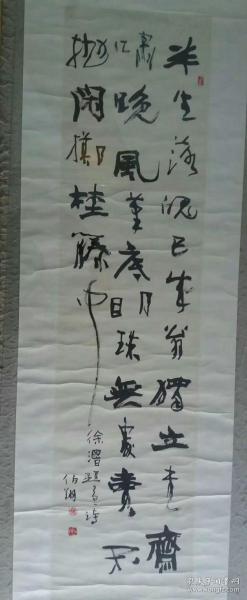 半生落魄已成翁獨立書齋
嘯晚風筆底明珠無處賣閒
拋閑擲埜藤中
徐渭題画詩